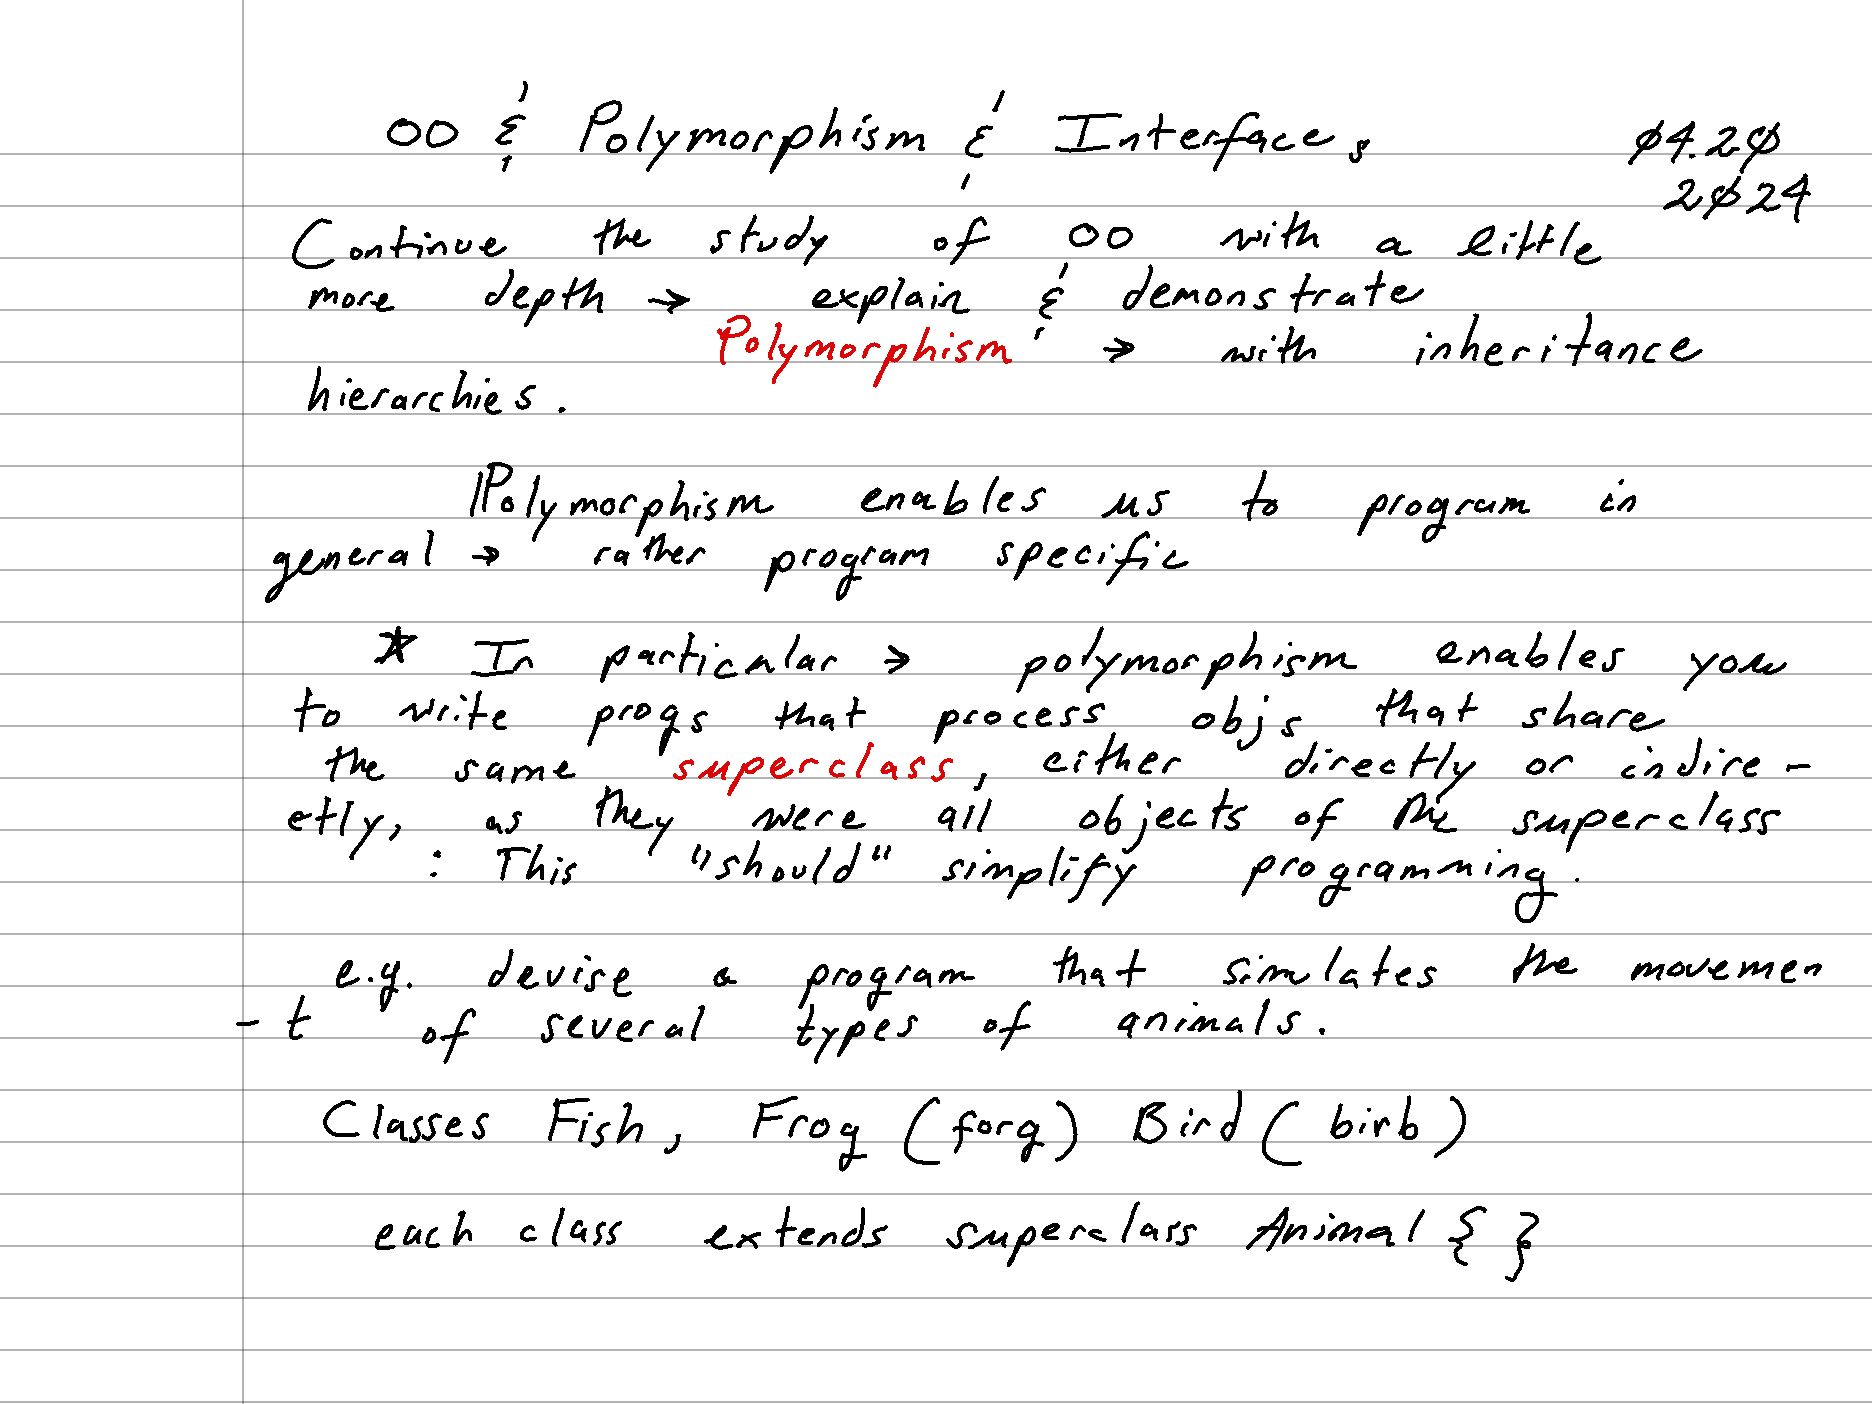 OO & Polymorphism & Interfaces
04.20
2024
Continue the study of OO with a little
more depth → explain & demonstrate
Polymorphism → with inheritance
hierarchies.
Polymorphism enables us to program in
general → rather program specific
* In particular → polymorphism enables you
to write progs that process objs that share
the same superclass, either directly or indire -
ctly, as they were all objects of the superclass
: This "should" simplify programming.
e.g. devise a program that simulates the movemen
- t of several types of animals.
Classes Fish, Frog (forg) Bird ( birb )
each class extends superclass Animal { }